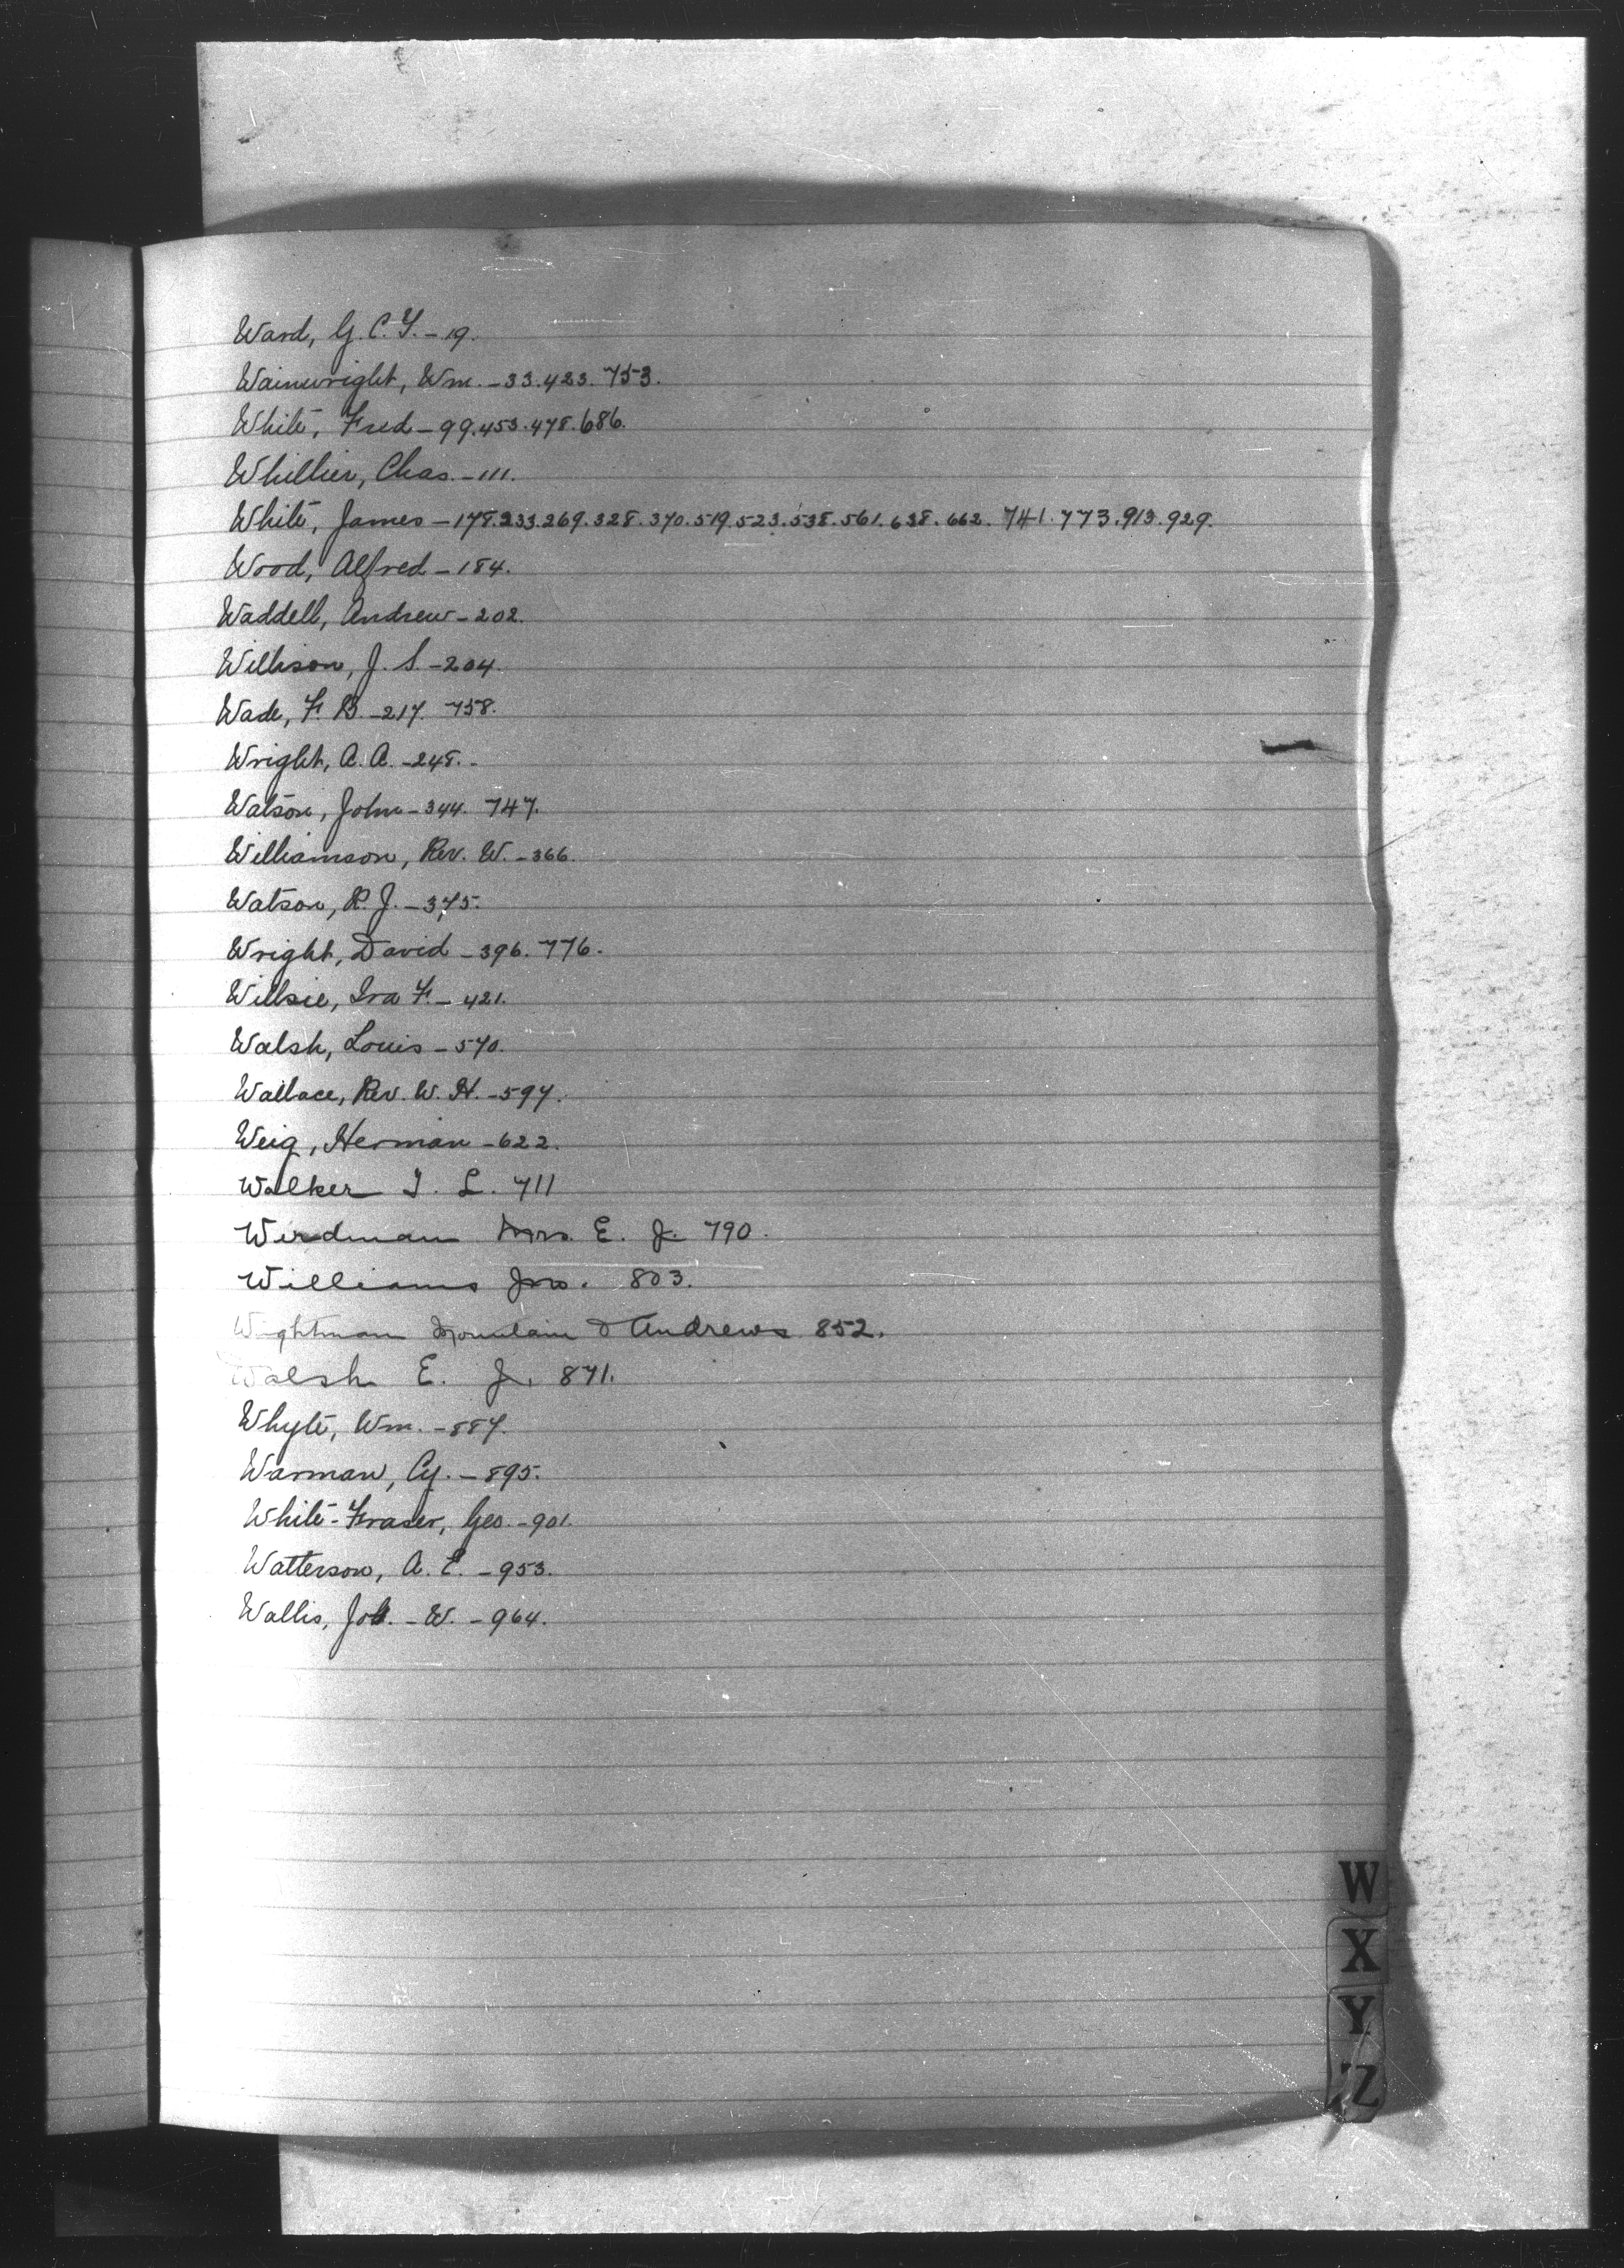 Ward, G. C. Y. - 19.
Wainwright, Wm. - 33. 423. 753.
White, Fred - 99. 453. 478. 686.
Whillier, Chas. - 111.
White, James - 178. 233. 269. 328. 370. 519. 523. 538. 561. 638. 662. 741. 773. 913. 929.
Wood, Alfred - 184.
Waddell, Andrew - 202.
Willison, J. S. - 204.
Wade, F. B. - 217. 758.
Wright, A. A. - 248. -
Watson, John - 344. 747.
Williamson, Rev. W. - 366.
Watson, R. J. - 375.
Wright, David - 396. 776.
Willsie, Ira F. - 421.
Walsh, Louis - 570.
Wallace, Rev. W. H. - 597.
Weig, Herman - 622.
Walker J. L. 711
Wirdman Mrs. E. J. 790.
Williams Jno. 803.
Wightman Mountain & Andrews 852.
Walsh E. J. 871.
Whyte, Wm. - 887.
Warman, Cy. - 895.
White-Fraser, Geo. - 901.
Watterson, A. E. - 953.
Wallis, - W. - 964.
W
X
Y
Z